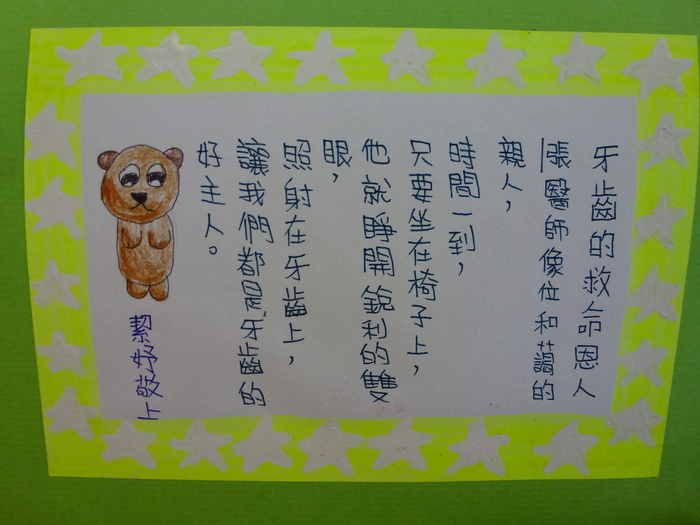 牙齒的救命恩人
張醫師像位和藹的
親人，
時間一到，
只要坐在椅子上，
他就睜開銳利的雙
眼，
照射在牙齒上，
讓我們都是牙齒的
好主人。
絜妤敬上